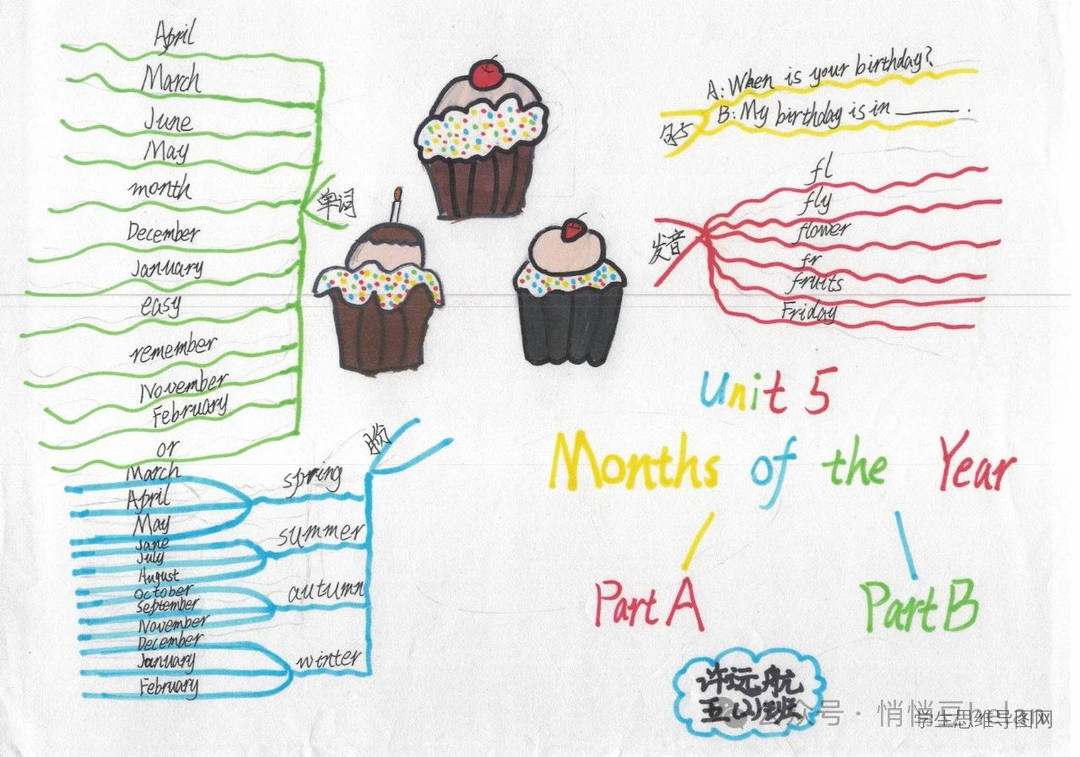 April
March
June
May
month
December
January
easy
remember
November
February
or
单词
A: When is your birthday?
B: My birthday is in ______.
句子
发音
fl
fly
flower
fr
fruits
Friday
Unit 5
Months of the Year
Part A
Part B
月份
spring
March
April
May
summer
June
July
August
autumn
October
September
November
winter
December
January
February
许远航
五(4)班
学生思维导图网